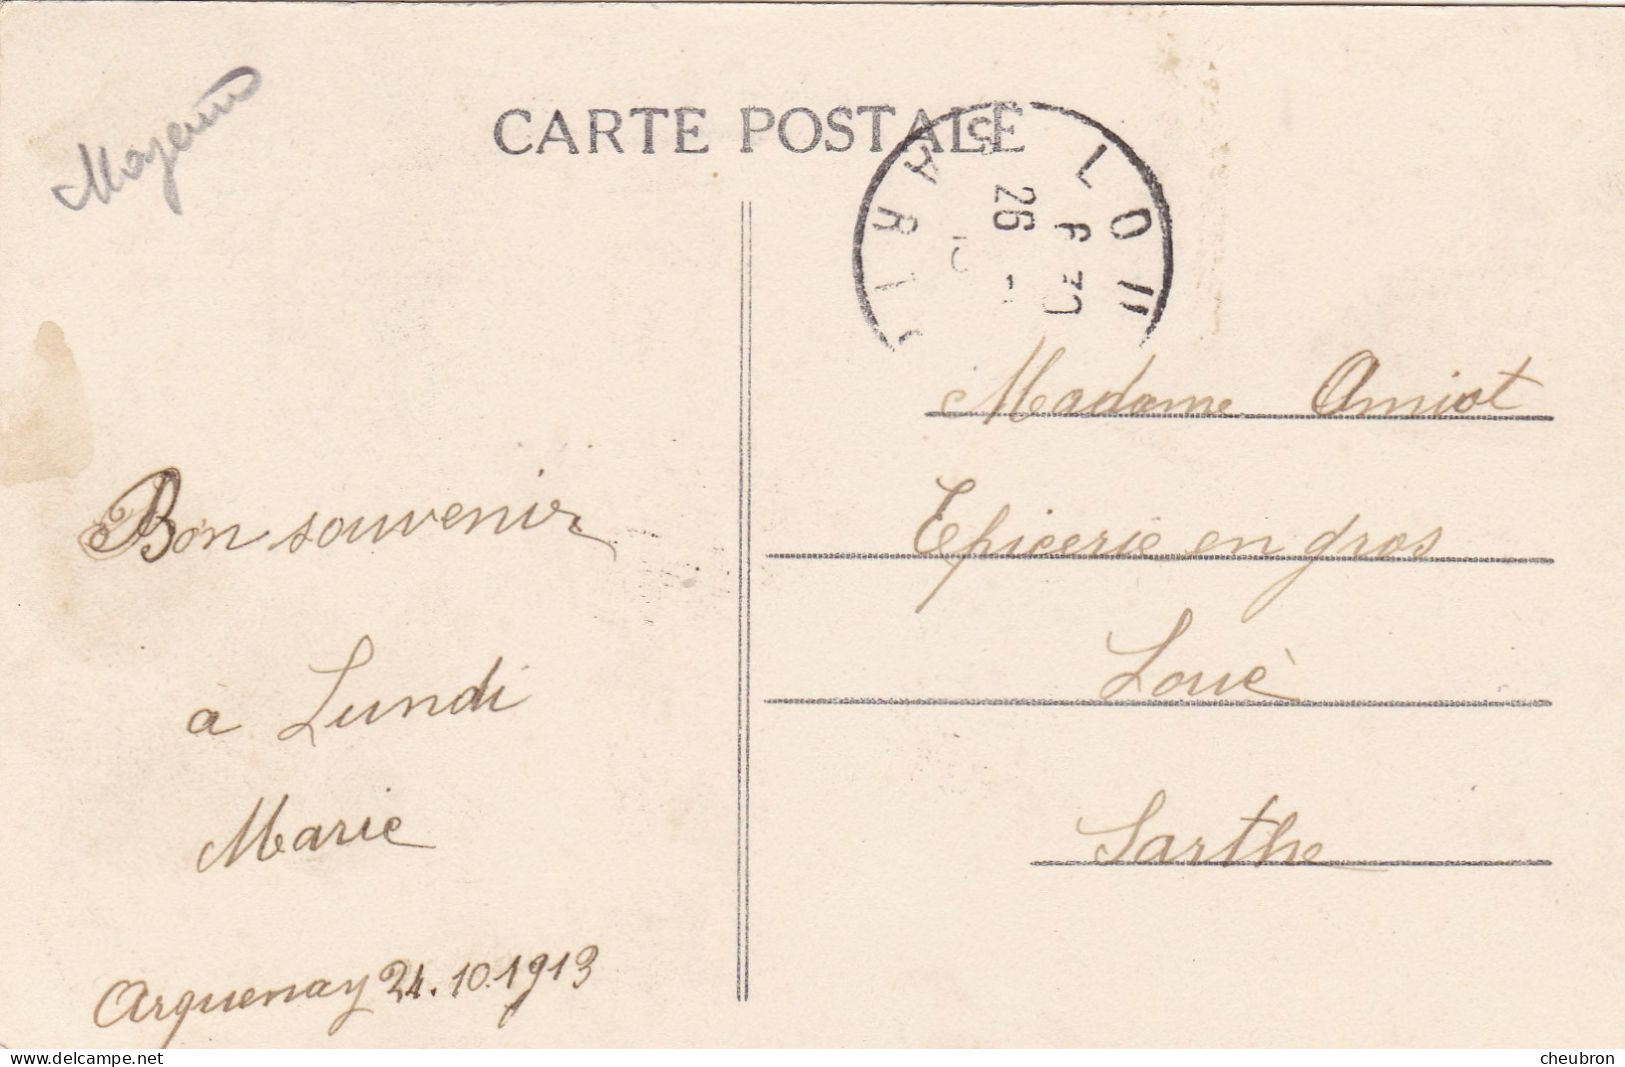 Mayenne
CARTE POSTALE
LOUÉ
6 30
26 - 10
SARTHE
Madame Amiot
Epicerie en gros
Louè
Sarthe
Bon souvenir
a Lundi
Marie
Arquenay 24.10.1913
www.delcampe.net
cheubron